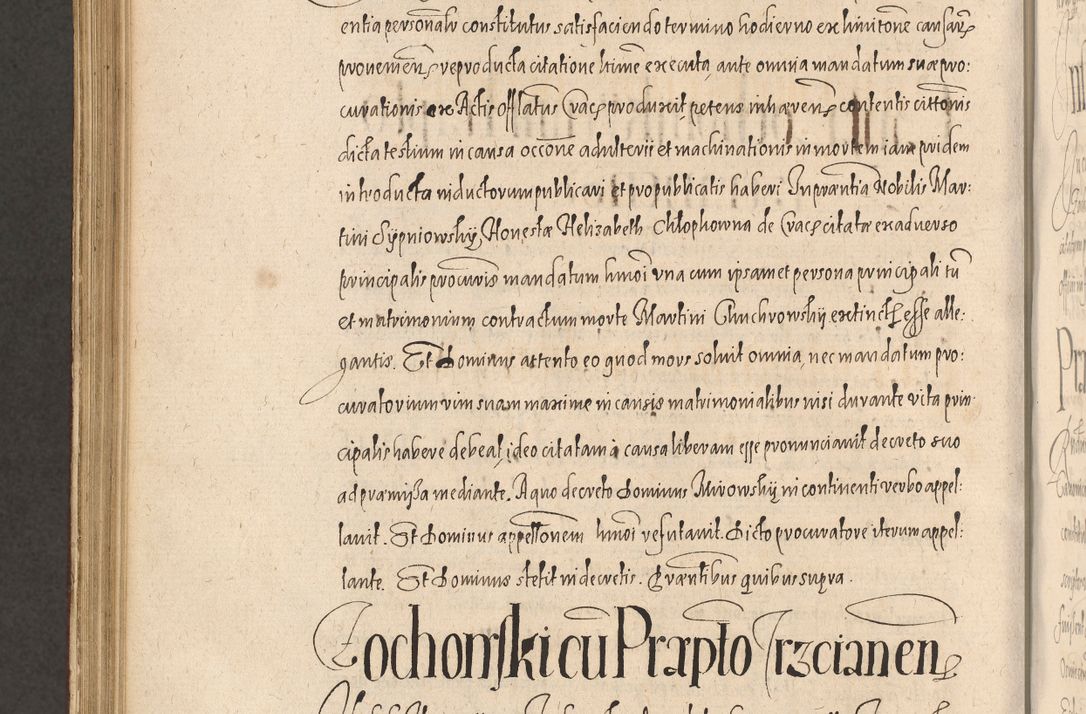 entia personalr constitutus satisfaciendo termino hodierno ex limitone causarũ
provenien reproducta citatione hinc executa, ante omnia mandatum suæ pro:
curationis ex Actis offlatus Crac produxit petens inhæren contentis cittonis
dicta testium in causa occone adulterii et machinationis in mortem iam pridem
introducta inductorum publicari et pro publicatis haberi In præntia Nobilis Mar:
tini Sypniowskÿ, Honestæ Helizabeth Chłophowna de Crac citatæ ex adverso
principalis procuris mandatum hmoi vna cum ipsamet persona principali tũ
et matrimonium contractum morte Martini Chuchrowskÿ extinct esse alle:
gantis. Et Dominus attento eo quod mors solvit omnia, nec mandatum pro:
curatorium vim suam maxime in causis matrimonialibus nisi durante vita prin
cipalis habere debeat, ideo citatam a causa liberam esse pronunciavit decreto suo
ad præmissa mediante. A quo decreto Dominus Mirowskÿ in continenti verbo appel:
lavit. Et Dominus appellonem hmoi refutavit. Dicto procuratore iterum appel:
lante. Et Dominus stetit in decretis. Præntibus quibus supra.
Zochowski cũ Præpto Trzcianen